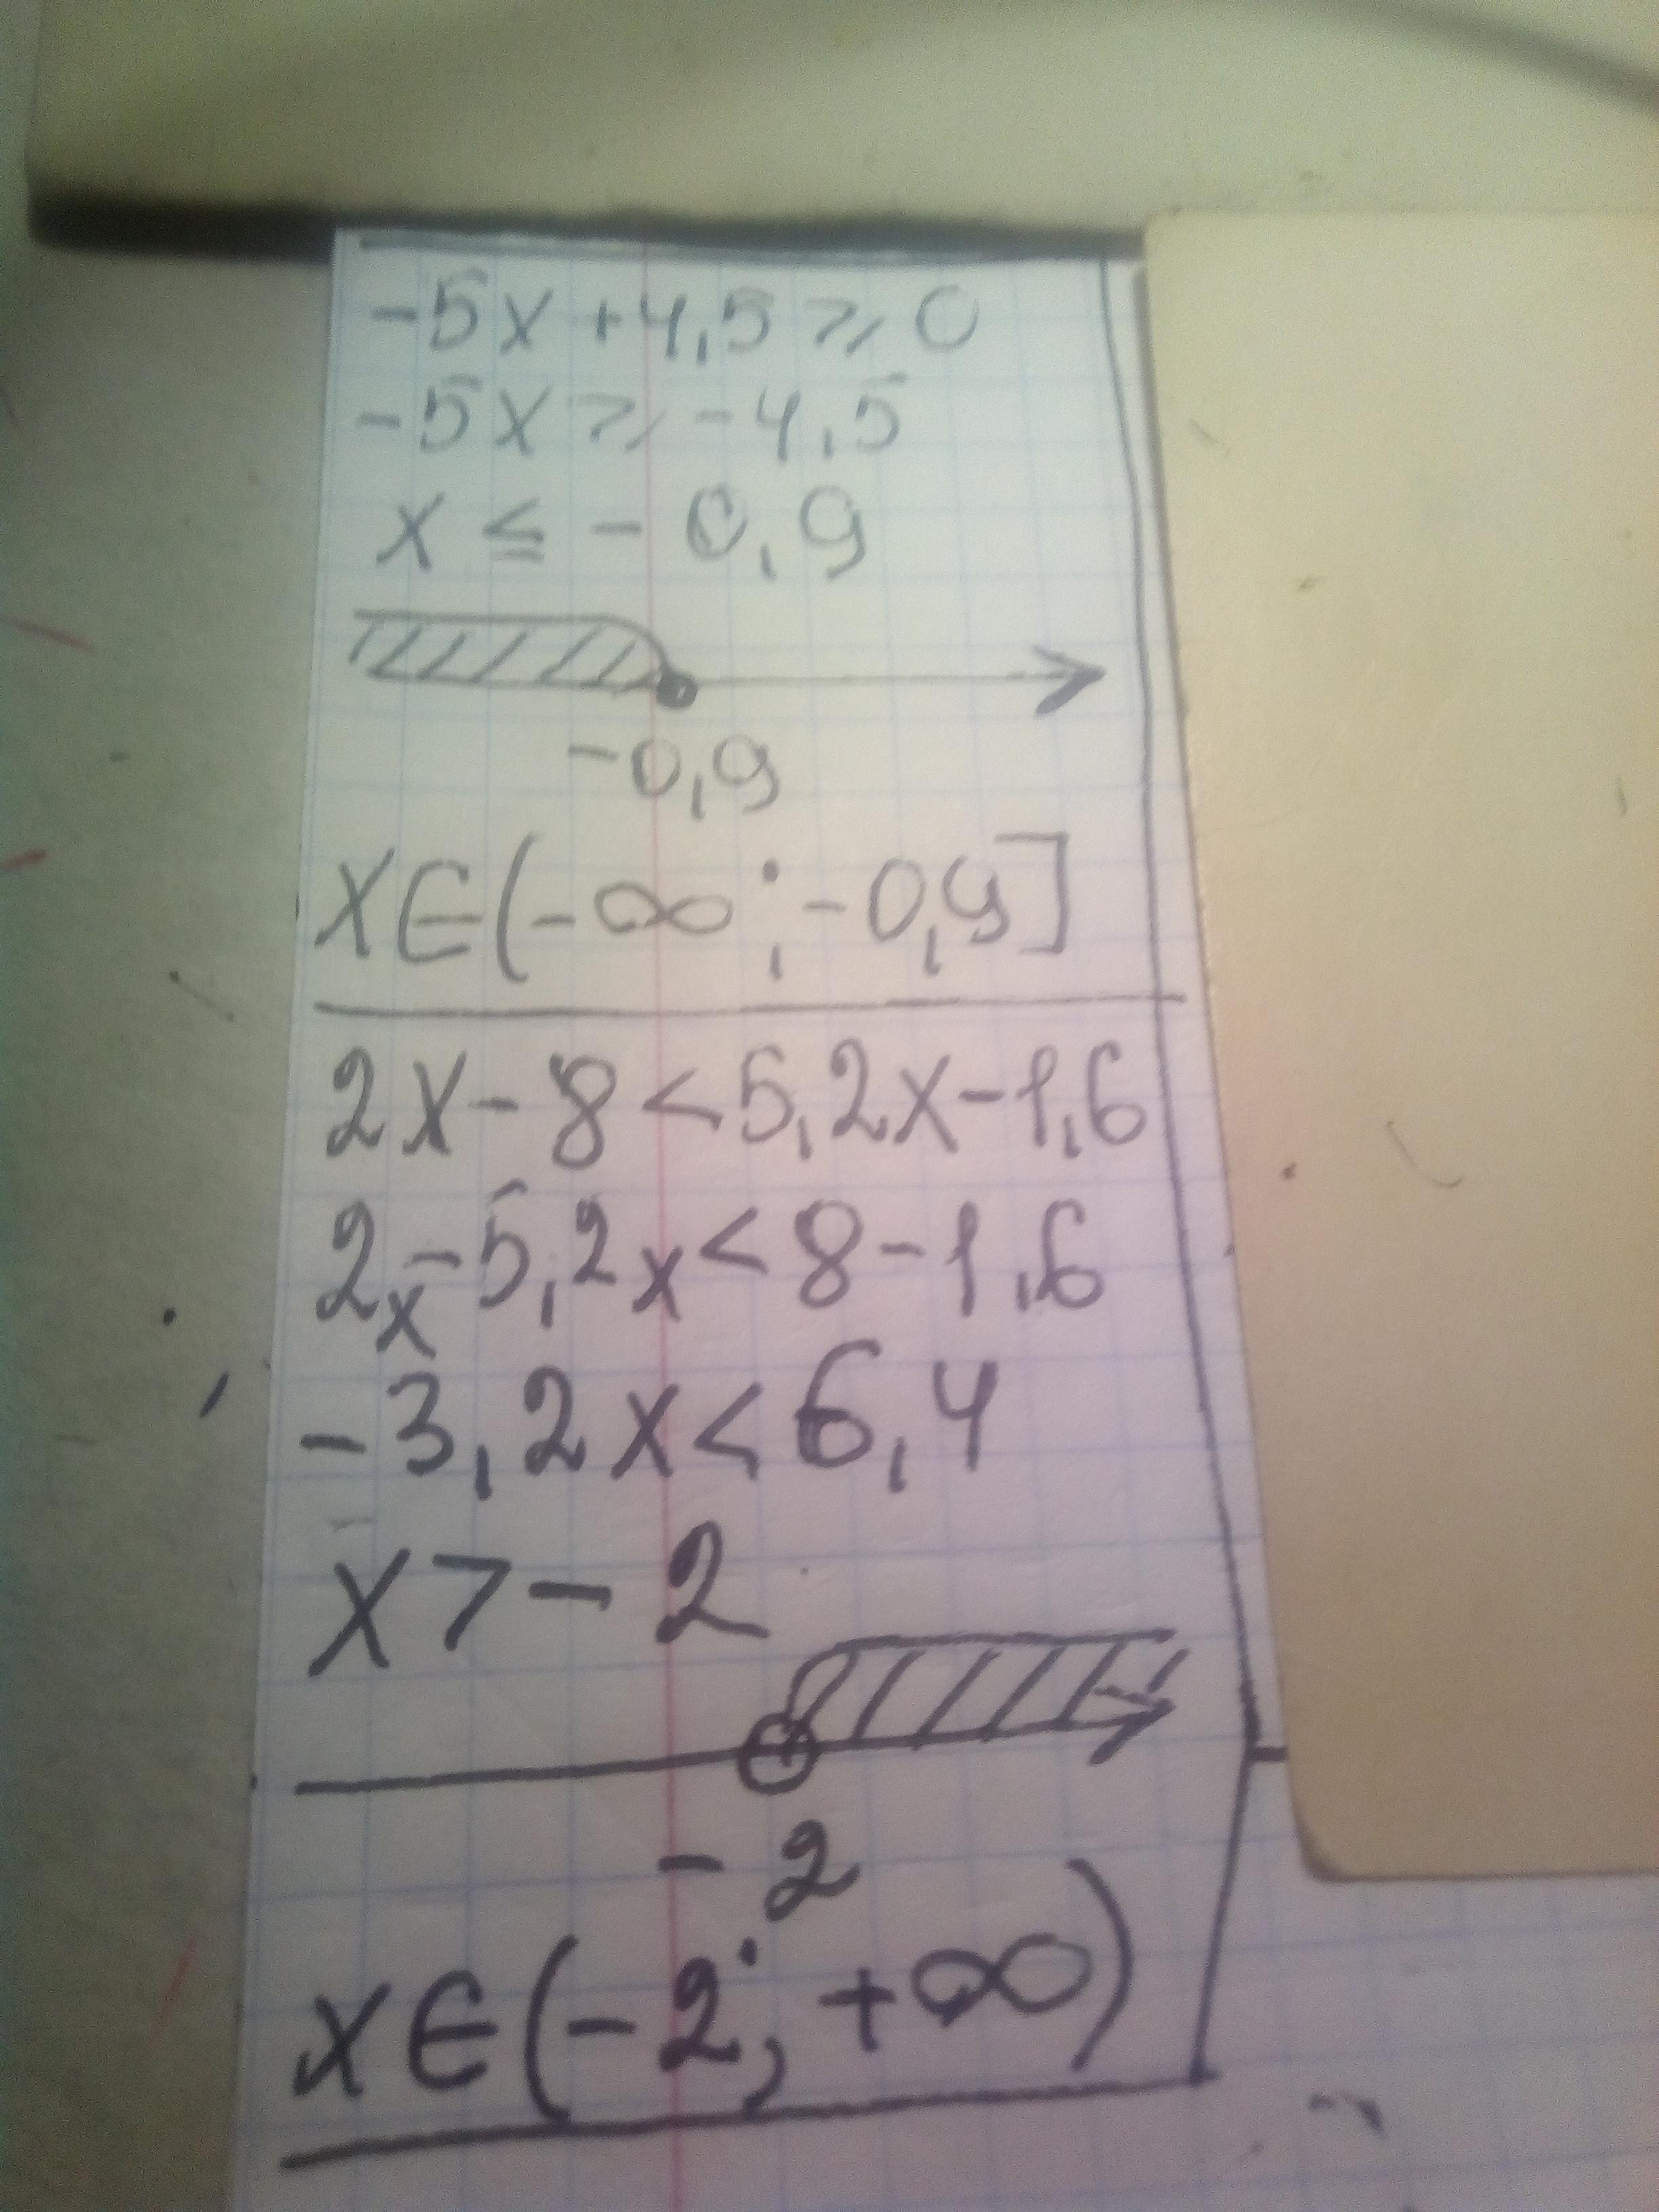 -5x+4,5⩾0
-5x⩾-4,5
x≤-0,9
-0,9
x∈(-∞;-0,9]
2x-8<5,2x-1,6
2x-5,2x<8-1,6
-3,2x<6,4
x>-2
-2
x∈(-2;+∞)